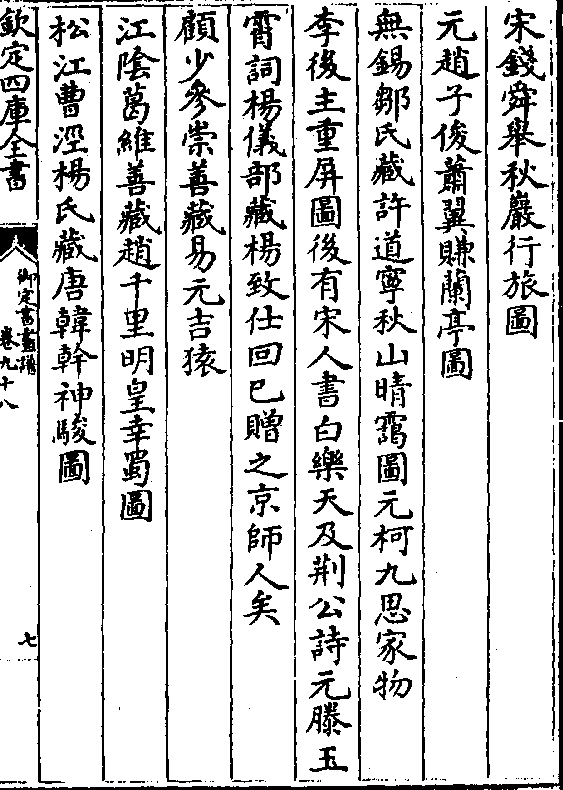 宋錢舜舉秋巖行旅圖
元趙子俊蕭翼賺蘭亭圖
無錫鄒氏藏許道寧秋山晴靄圖元柯九思家物
李後主重屏圖後有宋人書白樂天及荆公詩元滕玉
霄詞楊儀部藏楊致仕回已贈之京師人矣
顧少參崇善藏易元吉猿
江陰葛維善藏趙千里明皇幸蜀圖
松江曹涇楊氏藏唐韓幹神駿圖
欽定四庫全書
御定書畫譜
卷九十八
七